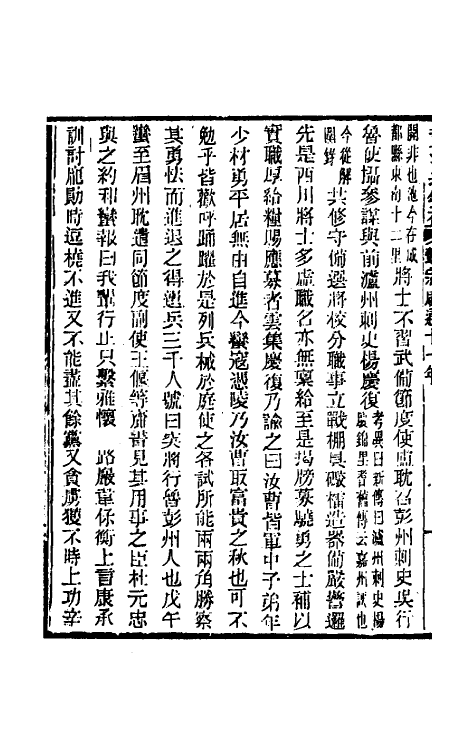 宗咸通十一年
開非也池今在成
都縣東南十二里
將士不習武備節度使盧耽召彭州刺史吳行
魯使攝參謀與前瀘州刺史楊慶復
考異曰新傳曰瀘州刺史楊
慶錦里耆舊傳云嘉州
今從解
圍錄
共修守備選將校分職事立戰棚具礮檑造器備嚴警邏
先是西川將士多虛職名亦無稟給至是揭牓募驍勇之士補以
實職厚給糧賜應募者雲集慶復乃諭之曰汝曹皆軍中子弟年
少材勇平居無由自進今蠻寇憑陵乃汝曹取富貴之秋也可不
勉乎皆歡呼踊躍於是列兵械於庭使之各試所能兩兩角勝察
其勇怯而進退之得選兵三千人號曰突將行魯彭州人也戊午
蠻至眉州耽遣同節度副使王偃等齎書見其用事之臣杜元忠
與之約和蠻報曰我輩行止只繫雅懷 路巖韋保衡上言康承
訓討龐勛時逗橈不進又不能盡其餘黨又貪虜獲不時上功辛